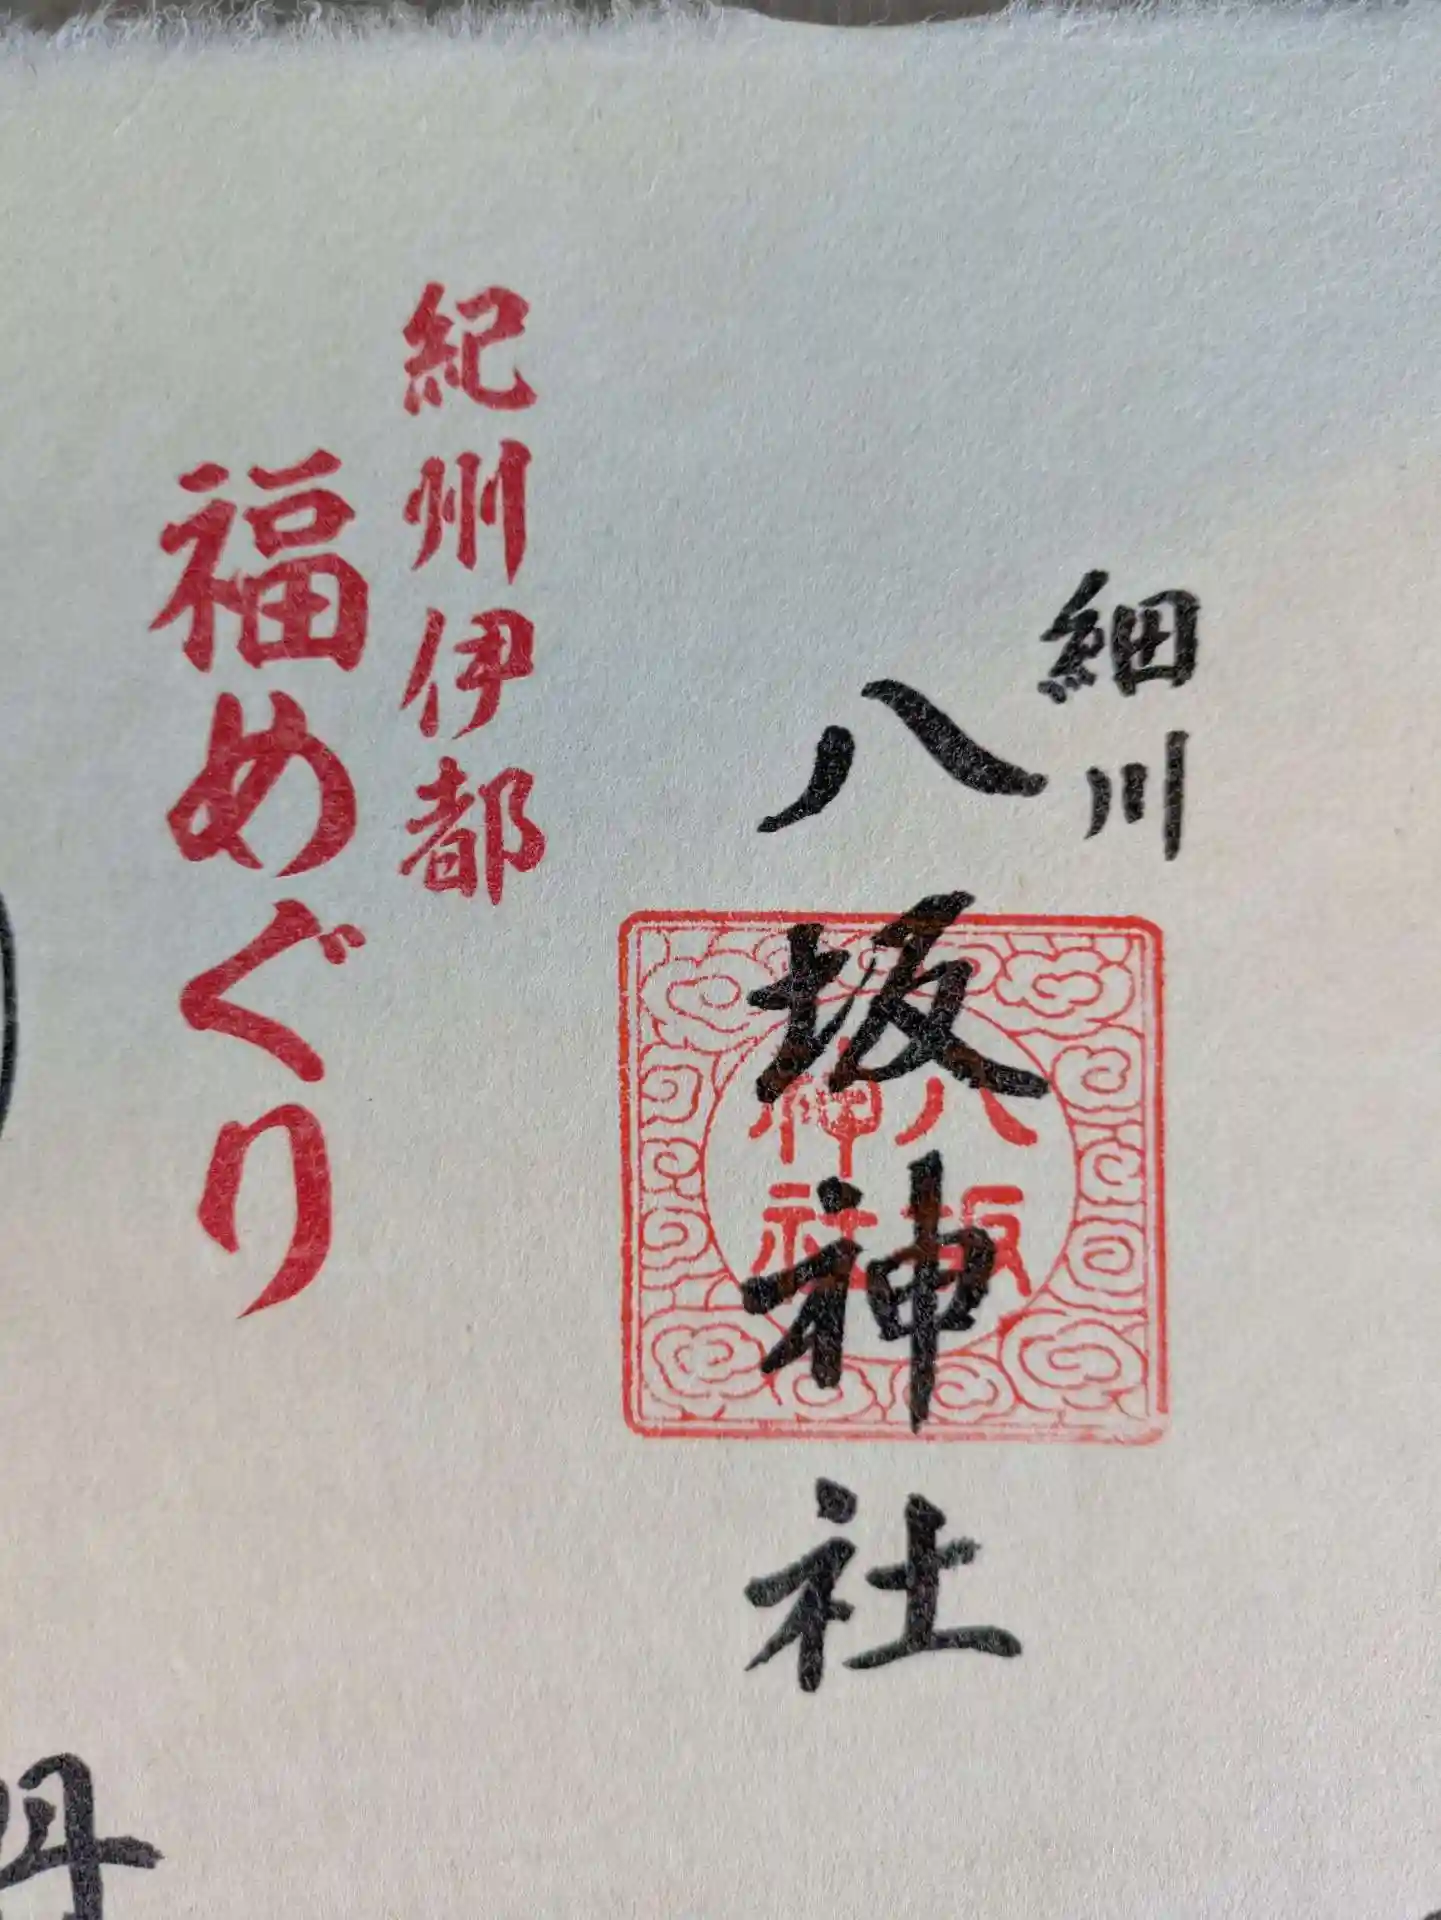 細川
八坂神社
八坂
神社
紀州伊都
福めぐり